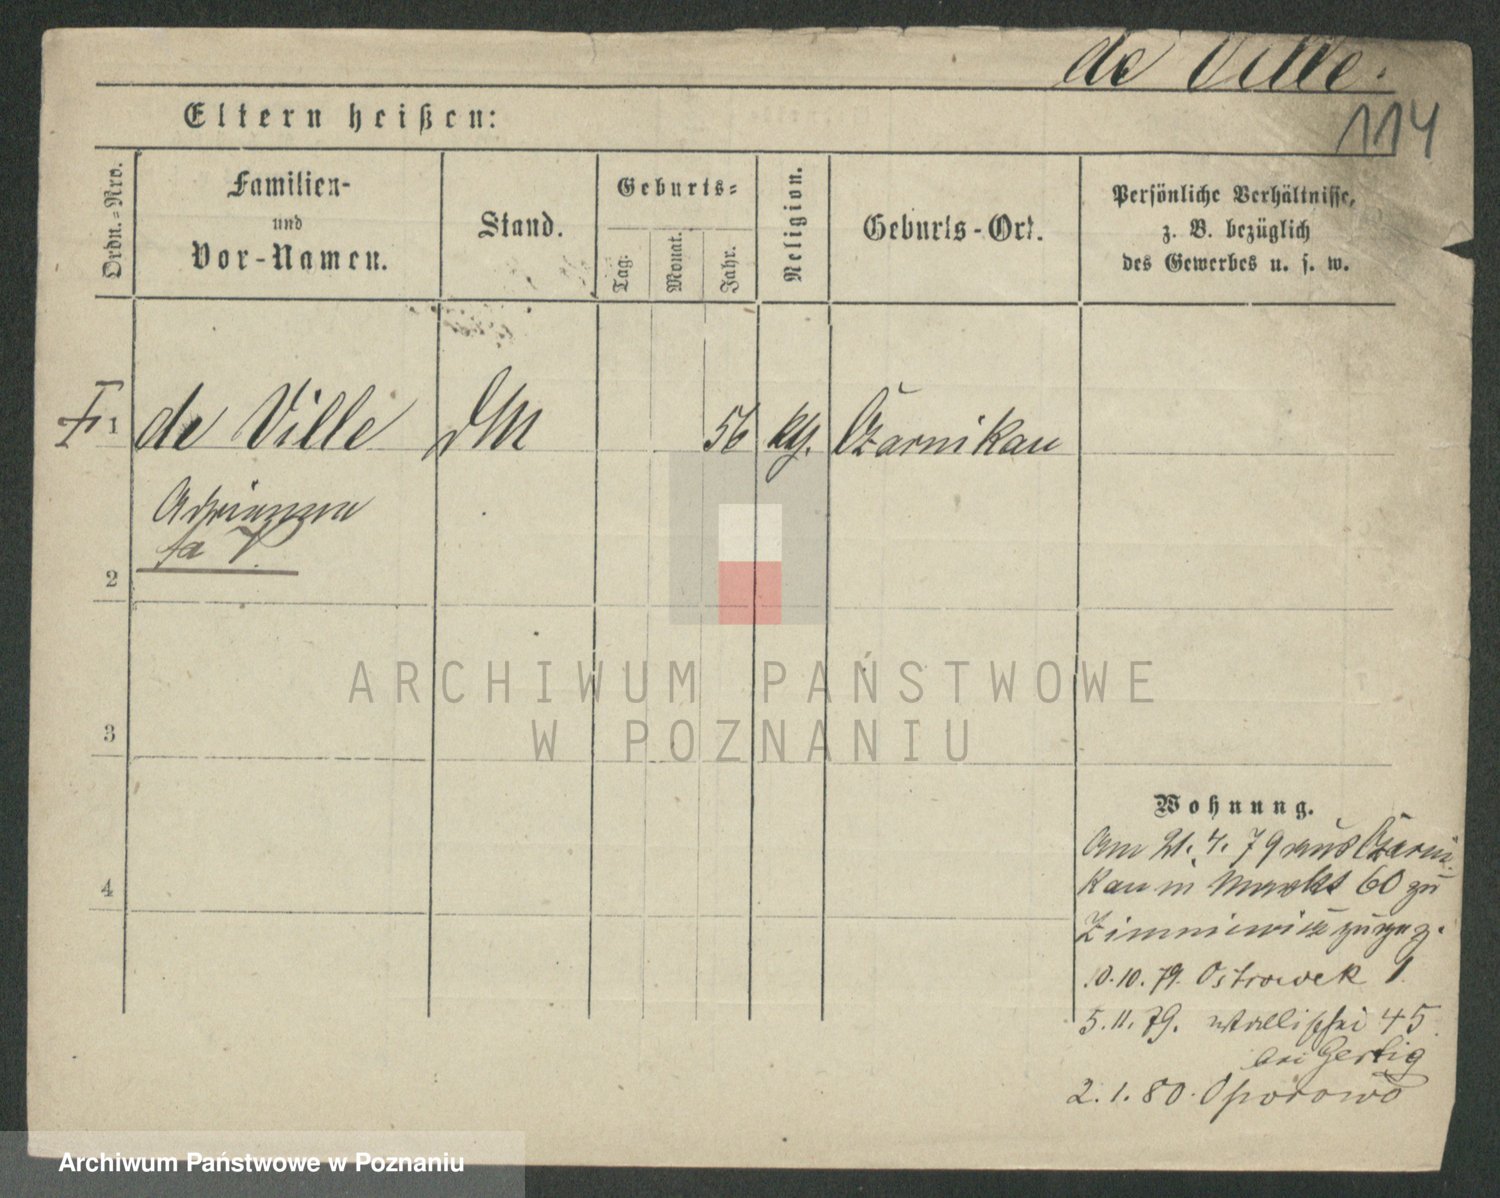 de Ville.
114
Eltern heißen:
Ordn.-Nro.
Familien-
und
Vor-Namen.
Stand.
Geburts-
Tag.
Monat.
Jahr.
Religion.
Geburts-Ort.
Persönliche Verhältnisse,
z. B. bezüglich
des Gewerbes u. s. w.
1 de Ville DM 56 kth. Czarnikau
Adrianna
2
3
4
ARCHIWUM PAŃSTWOWE
W POZNANIU
Wohnung.
Am 21. 4. 79 aus Czarni
kau in Markt 60 zu
Zimniewicz zugezog.
10.10.79. Ostrowek 1
5.11.79. Wallischei 45
bei Gertig
2.1.80. Oporowo
Archiwum Państwowe w Poznaniu